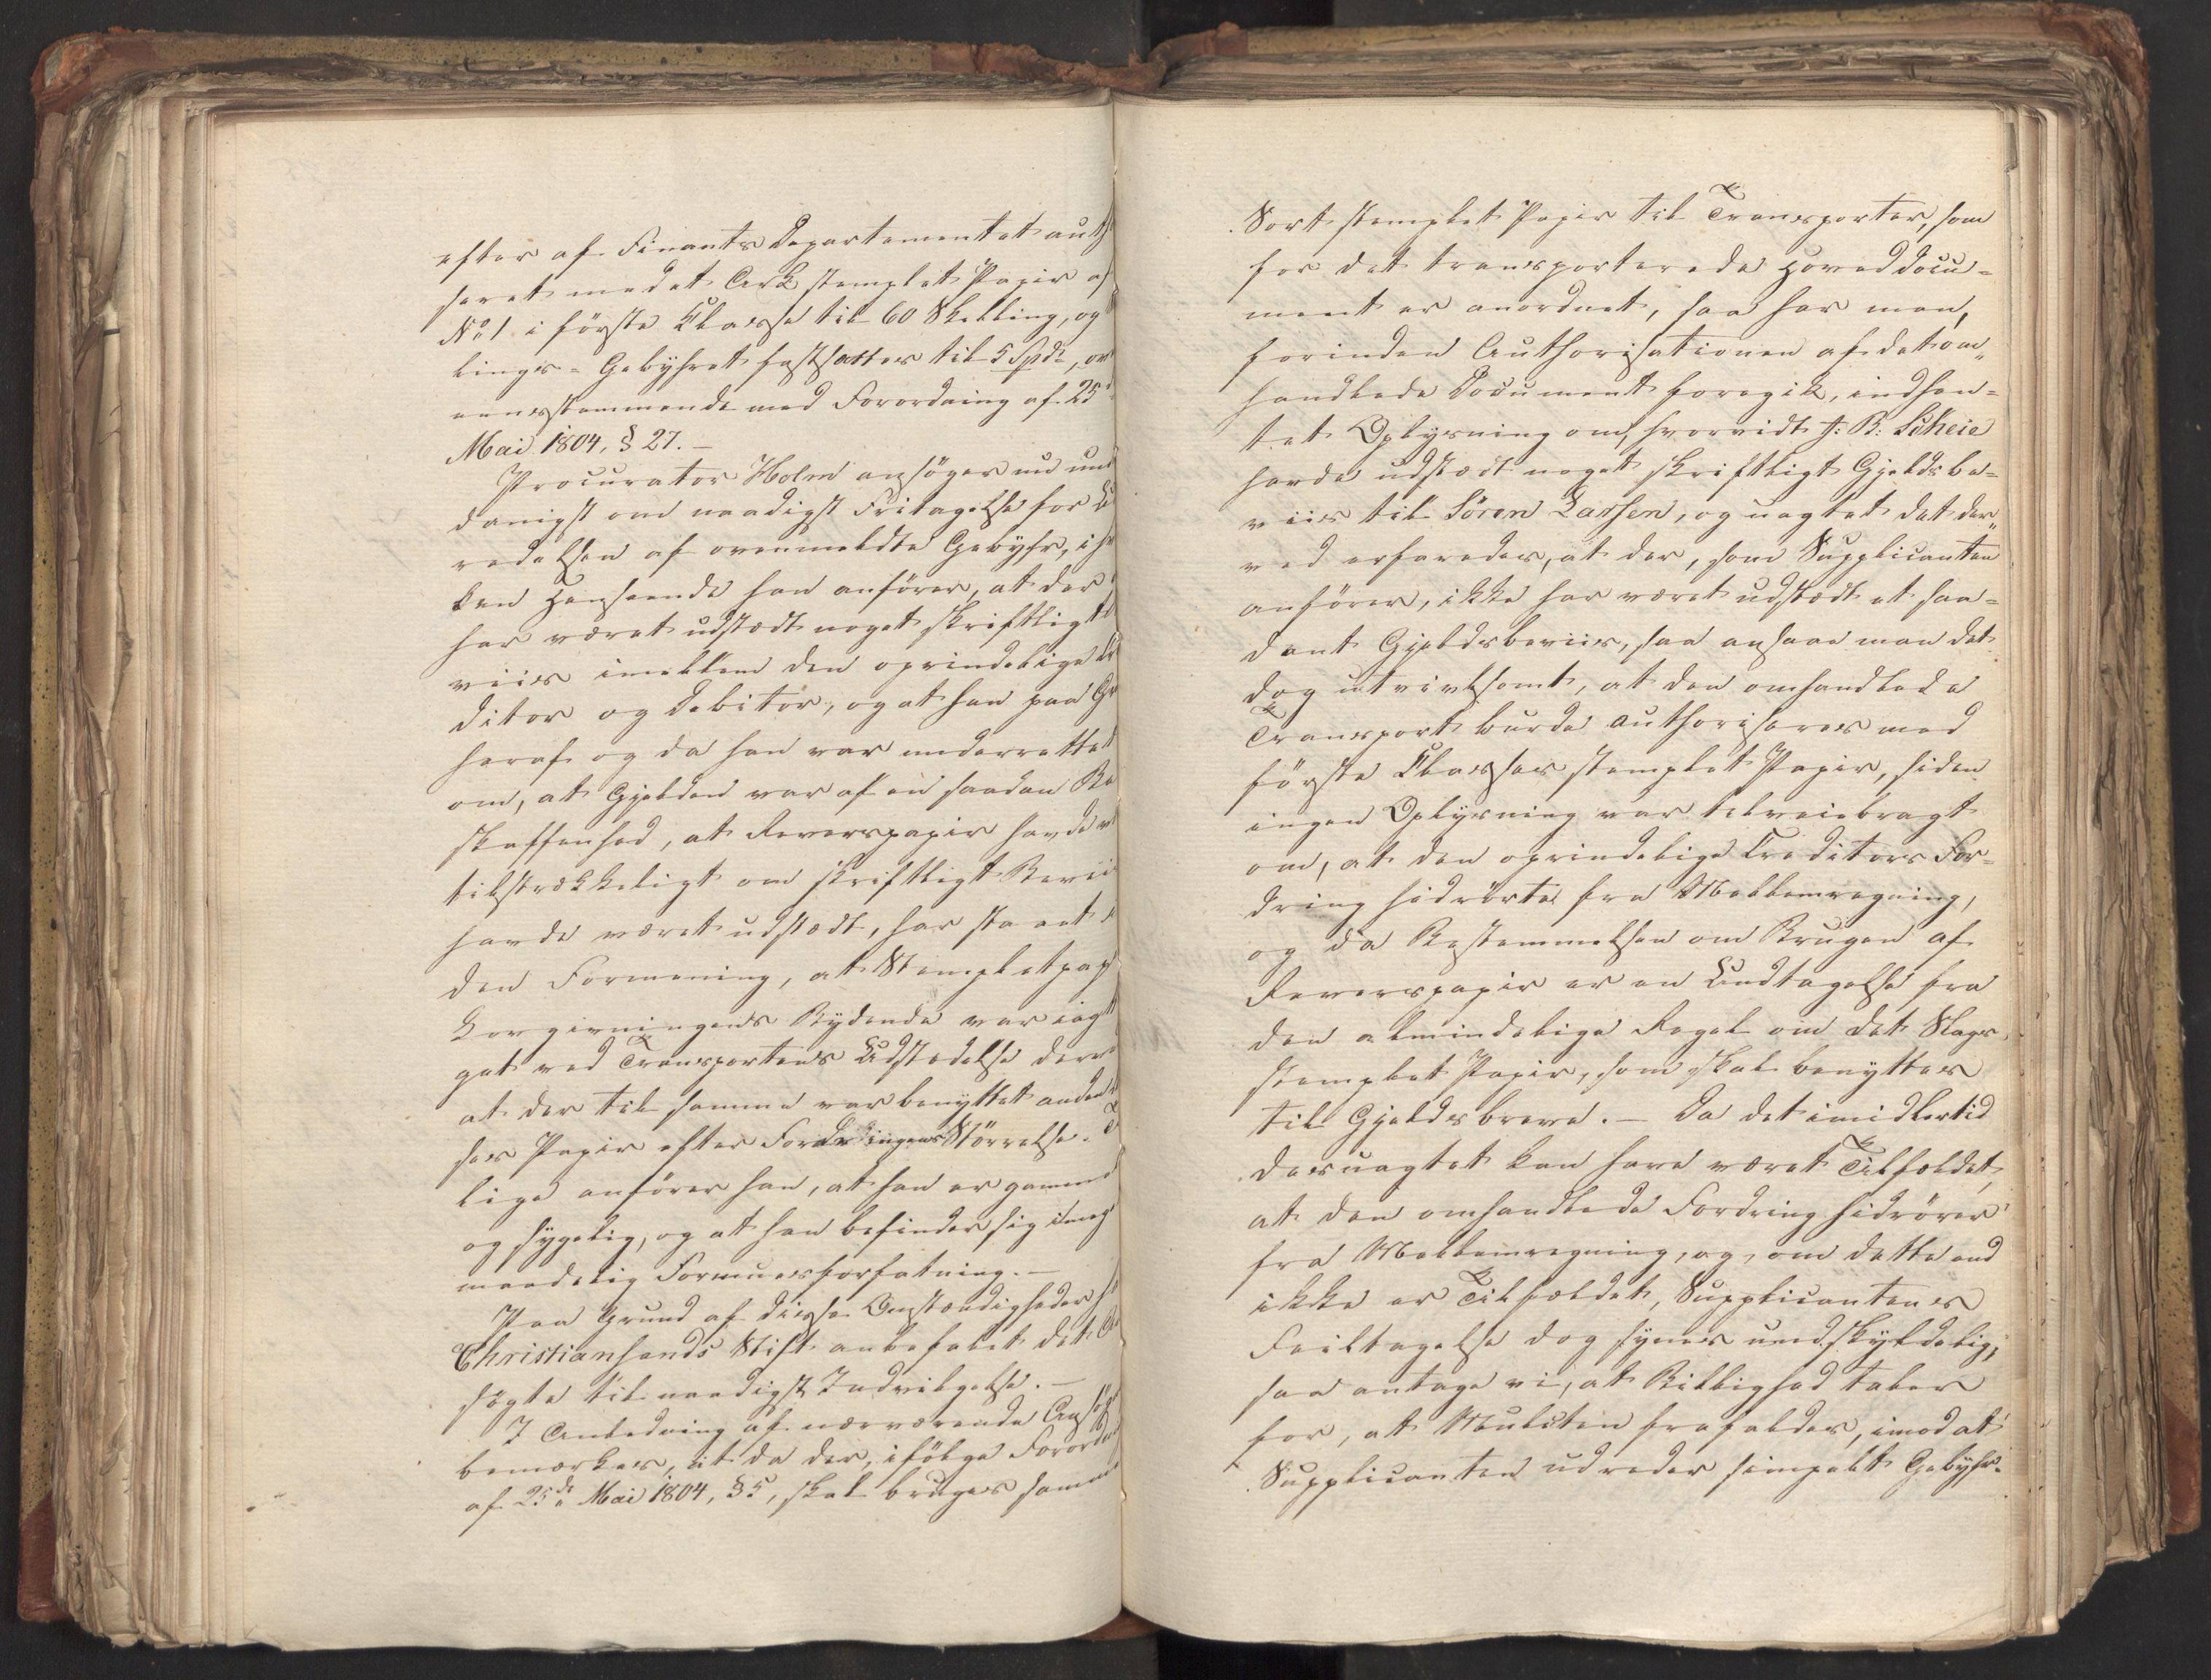 efter af Finants Departementet auth
seret med et Ark stemplet Papir af
No 1 i förste Classe til 60 Skilling, og
lings-Gebyhret fastsattes til 5 Spd:, ov
eensstemmende med Forordning af 25
Mai 1804, § 27.-
Procurator Holm ansöger nu und
danigst om naadigst Fritagelse for U
redelsen af ovenmeldte Gebyhr, i h
ken Henseende han anförer, at der
har været udstædt noget skriftligt
viis imellem den oprindelige Cr
ditor og Debitor, og at han paa Gr
heraf og da han var underrettet
om, at Gjelden var af en saadan Be
skaffenhed, at Reverspapir havde v
tilstrækkeligt om skriftligt Bevii
havde været udstædt, har staaet i
den Formening, at Stempletpap
Lovgivningens Bydende var iagt
get ved Transportens Udstedelse derv
at der til samme var benyttet anden
ses Papir efter Fordringens Störrelse.
lige anförer han, at han er gamme
og sygelig, og at han befinder sig i meg
maadelig Formuesforfatning.-
Paa Grund af disse Omstændigheder h
Christiansands Stift anbefalet det An
sögte til naadigst Indvilgelse.-
I Anledning af nærværende Ansög
bemærkes, at da der, ifölge Forord
af 25de Mai 1804, § 5, skal bruges samm
Sort stemplet Papir til Transporter, som
for det transporterede Hoveddocu-
ment er anordnet, saa har man,
forinden Authorisationen af det om-
handlede Document foregik, indhen-
tet Oplysning om, hvorvidt J: B: Scheie
havde udstædt noget skriftligt Gjeldsbe-
viis til Sören Lassen, og uagtet det der-
ved erfaredes, at der, som Supplicanten
anförer, ikke har været udstædt et saa-
dant Gjeldsbeviis, saa ansaae man det
dog utvivlsomt, at den omhandlede
Transport burde authoriseres med
förste Classes stemplet Papir, siden
ingen Oplysning var tilveiebragt
om, at den oprindelige Creditors For-
dring hidrörte fra Mellemregning,
og da Bestemmelsen om Brugen af
Reverspapir er en Undtagelse fra
den almindelige Regel om det Slags
stemplet Papir, som skal benyttes
til Gjeldsbreve.- Da det imidlertid
desuagtet kan have været Tilfældet,
at den omhandlede Fordring hidrörer
fra Mellemregning, og, om dette end
ikke er Tilfældet, Supplicantens
Feiltagelse dog synes undskyldelig,
saa antage vi, at Billighed taler
for, at Mulcten frafaldes, imod at
Supplicanten udreder simpelt Gebyhr.